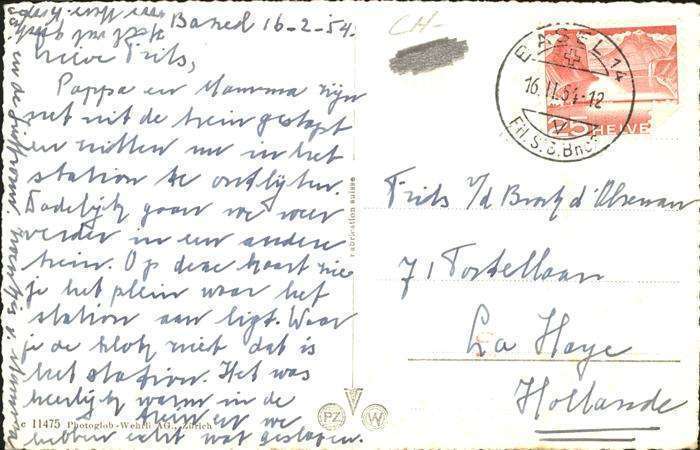 Basel 16-2-'54.
Lieve Frits,
Pappa en Mamma zijn
net uit de trein gestapt
en zitten nu in het
station te ontbijten.
Dadelijk gaan we weer
verder in een andere
trein. Op deze kaart zie
je het plein waar het
station aan ligt. Waar
je de klok ziet dat is
het station. Het was
heerlijk warm in de
trein en we
hebben echt wat geslapen.
c 11475 Photoglob-Wehrli AG., Zürich
Fabrication suisse
PZ W
CH-
BASEL 14
16.II.54-12
25 HELVE
Frits v/d
71 Tortellaan
La Haye
Hollande